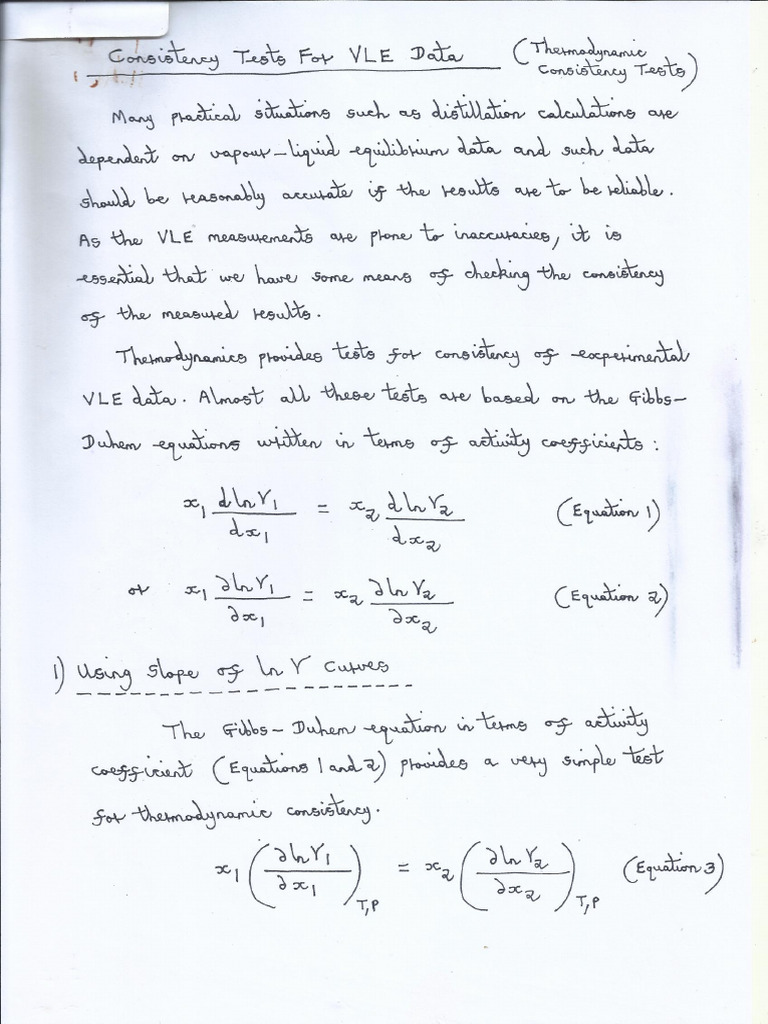 Consistency Tests For VLE Data (Thermodynamic
Consistency Tests)
Many practical situations such as distillation calculations are
dependent on vapour-liquid equilibrium data and such data
should be reasonably accurate if the results are to be reliable.
As the VLE measurements are prone to inaccuracies, it is
essential that we have some means of checking the consistency
of the measured results.
Thermodynamics provides tests for consistency of experimental
VLE data. Almost all these tests are based on the Gibbs-
Duhem equations written in terms of activity coefficients:
x₁ d ln γ₁/dx₁ = x₂ d ln γ₂/dx₂ (Equation 1)
or x₁ ∂ ln γ₁/∂x₁ = x₂ ∂ ln γ₂/∂x₂ (Equation 2)
1) Using slope of ln γ curves
The Gibbs-Duhem equation in terms of activity
coefficient (Equations 1 and 2) provides a very simple test
for thermodynamic consistency.
x₁ (∂ ln γ₁/∂x₁)T,P = x₂ (∂ ln γ₂/∂x₂)T,P (Equation 3)